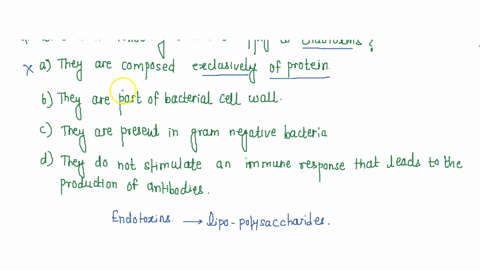 Endotoxins?
x a) They are composed exclusively of protein.
b) They are part of bacterial cell wall.
c) They are present in gram negative bacteria
d) They do not stimulate an immune response that leads to the
production of antibodies.
Endotoxins → lipo-polysaccharides.